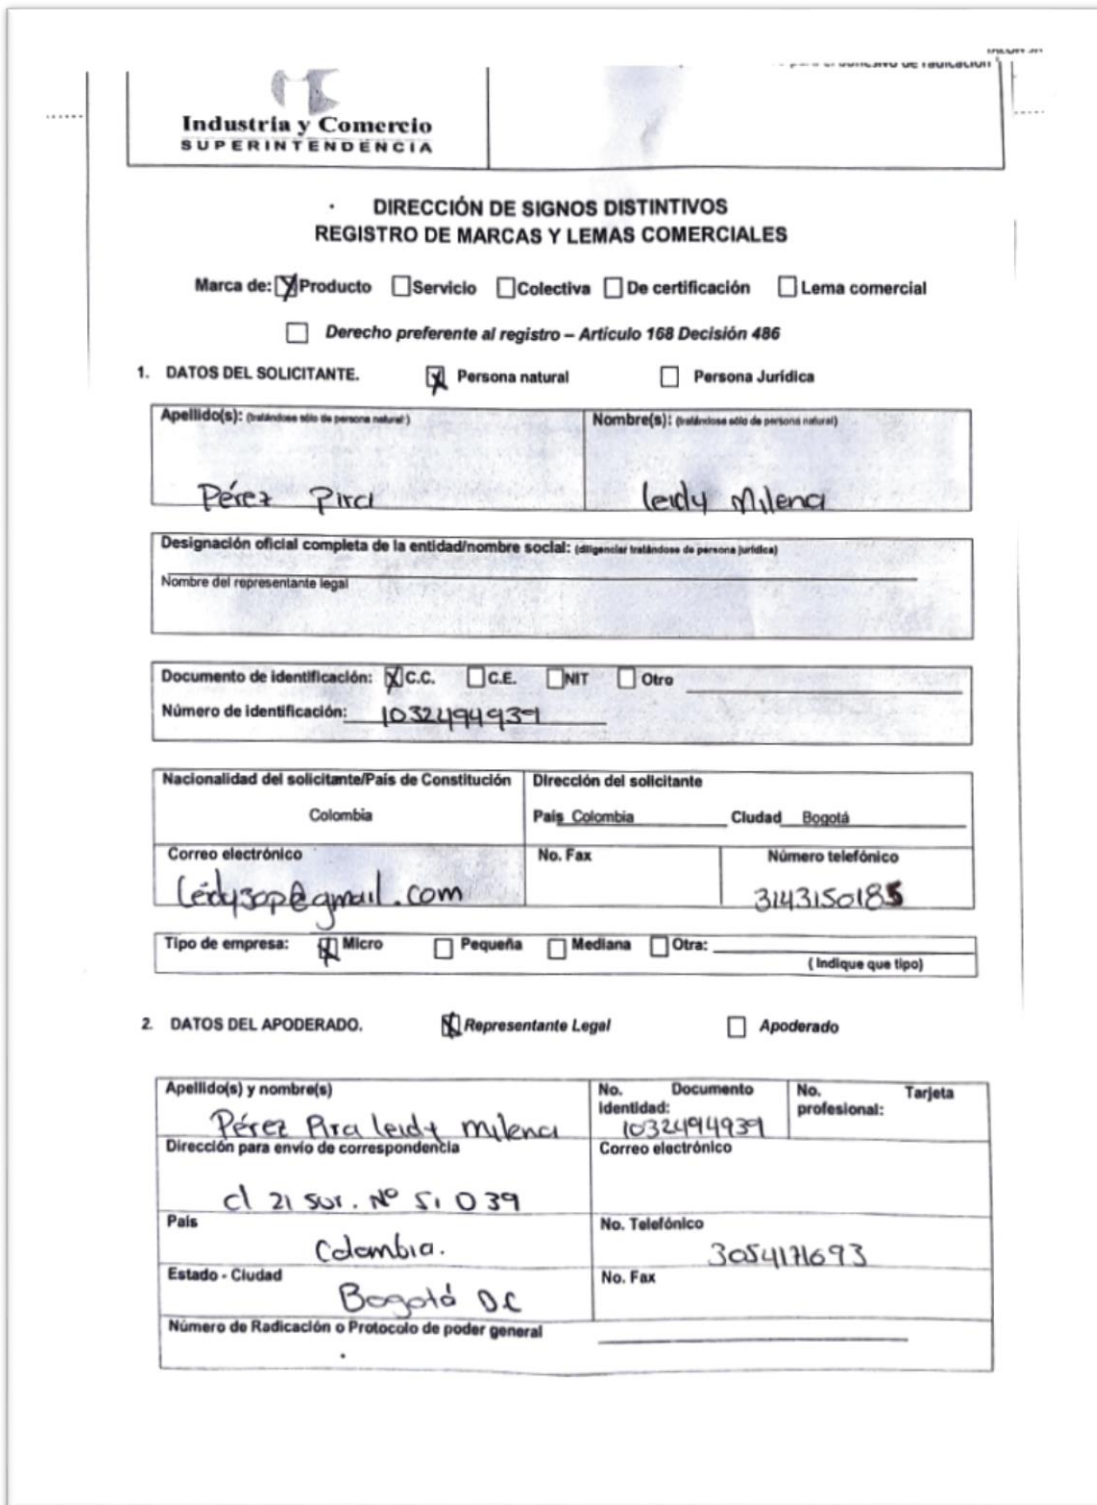 para el adhesivo de radicación
Industria y Comercio
SUPERINTENDENCIA
DIRECCIÓN DE SIGNOS DISTINTIVOS
REGISTRO DE MARCAS Y LEMAS COMERCIALES
Marca de: Producto Servicio Colectiva De certificación Lema comercial
Derecho preferente al registro – Artículo 168 Decisión 486
1. DATOS DEL SOLICITANTE. Persona natural Persona Jurídica
Apellido(s): (tratándose sólo de persona natural) Nombre(s): (tratándose sólo de persona natural)
Pérez Pira Leidy Milena
Designación oficial completa de la entidad/nombre social: (diligenciar tratándose de persona jurídica)
Nombre del representante legal
Documento de identificación: C.C. C.E. NIT Otro
Número de identificación: 1032494939
Nacionalidad del solicitante/País de Constitución Dirección del solicitante
Colombia País Colombia Ciudad Bogotá
Correo electrónico No. Fax Número telefónico
Leidy30p@gmail.com 3143150185
Tipo de empresa: Micro Pequeña Mediana Otra:
( Indique que tipo)
2. DATOS DEL APODERADO. Representante Legal Apoderado
Apellido(s) y nombre(s) No. Documento No. Tarjeta
Identidad: profesional:
Pérez Pira Leidy Milena 1032494939
Dirección para envío de correspondencia Correo electrónico
cl 21 sur. Nº 51 D 39
País No. Telefónico
Colombia. 3054171693
Estado - Ciudad No. Fax
Bogotá D.C
Número de Radicación o Protocolo de poder general